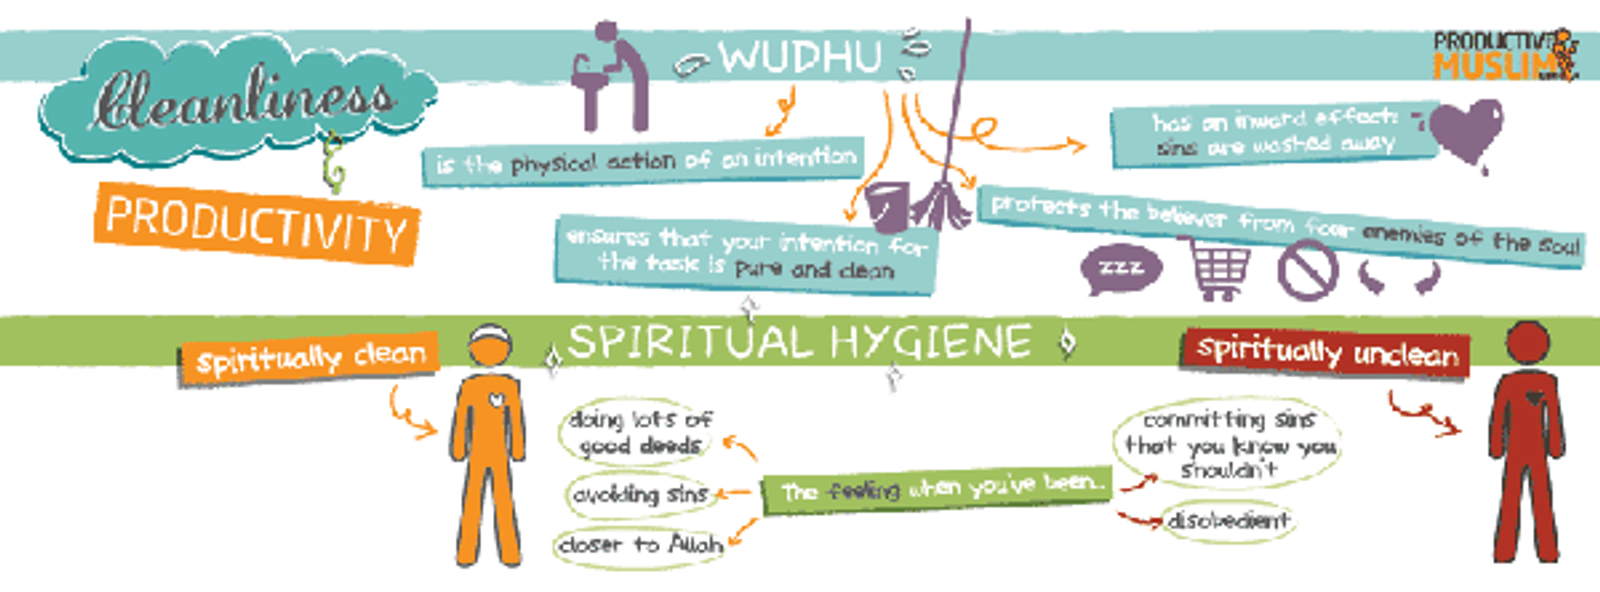 Cleanliness
PRODUCTIVITY
WUDHU
PRODUCTIVE
MUSLIM
is the physical action of an intention
ensures that your intention for
the task is pure and clean
has an inward effect:
sins are washed away
protects the believer from four enemies of the soul
zzz
SPIRITUAL HYGIENE
spiritually clean
spiritually unclean
The feeling when you've been...
doing lots of
good deeds
avoiding sins
closer to Allah
committing sins
that you know you
shouldn't
disobedient